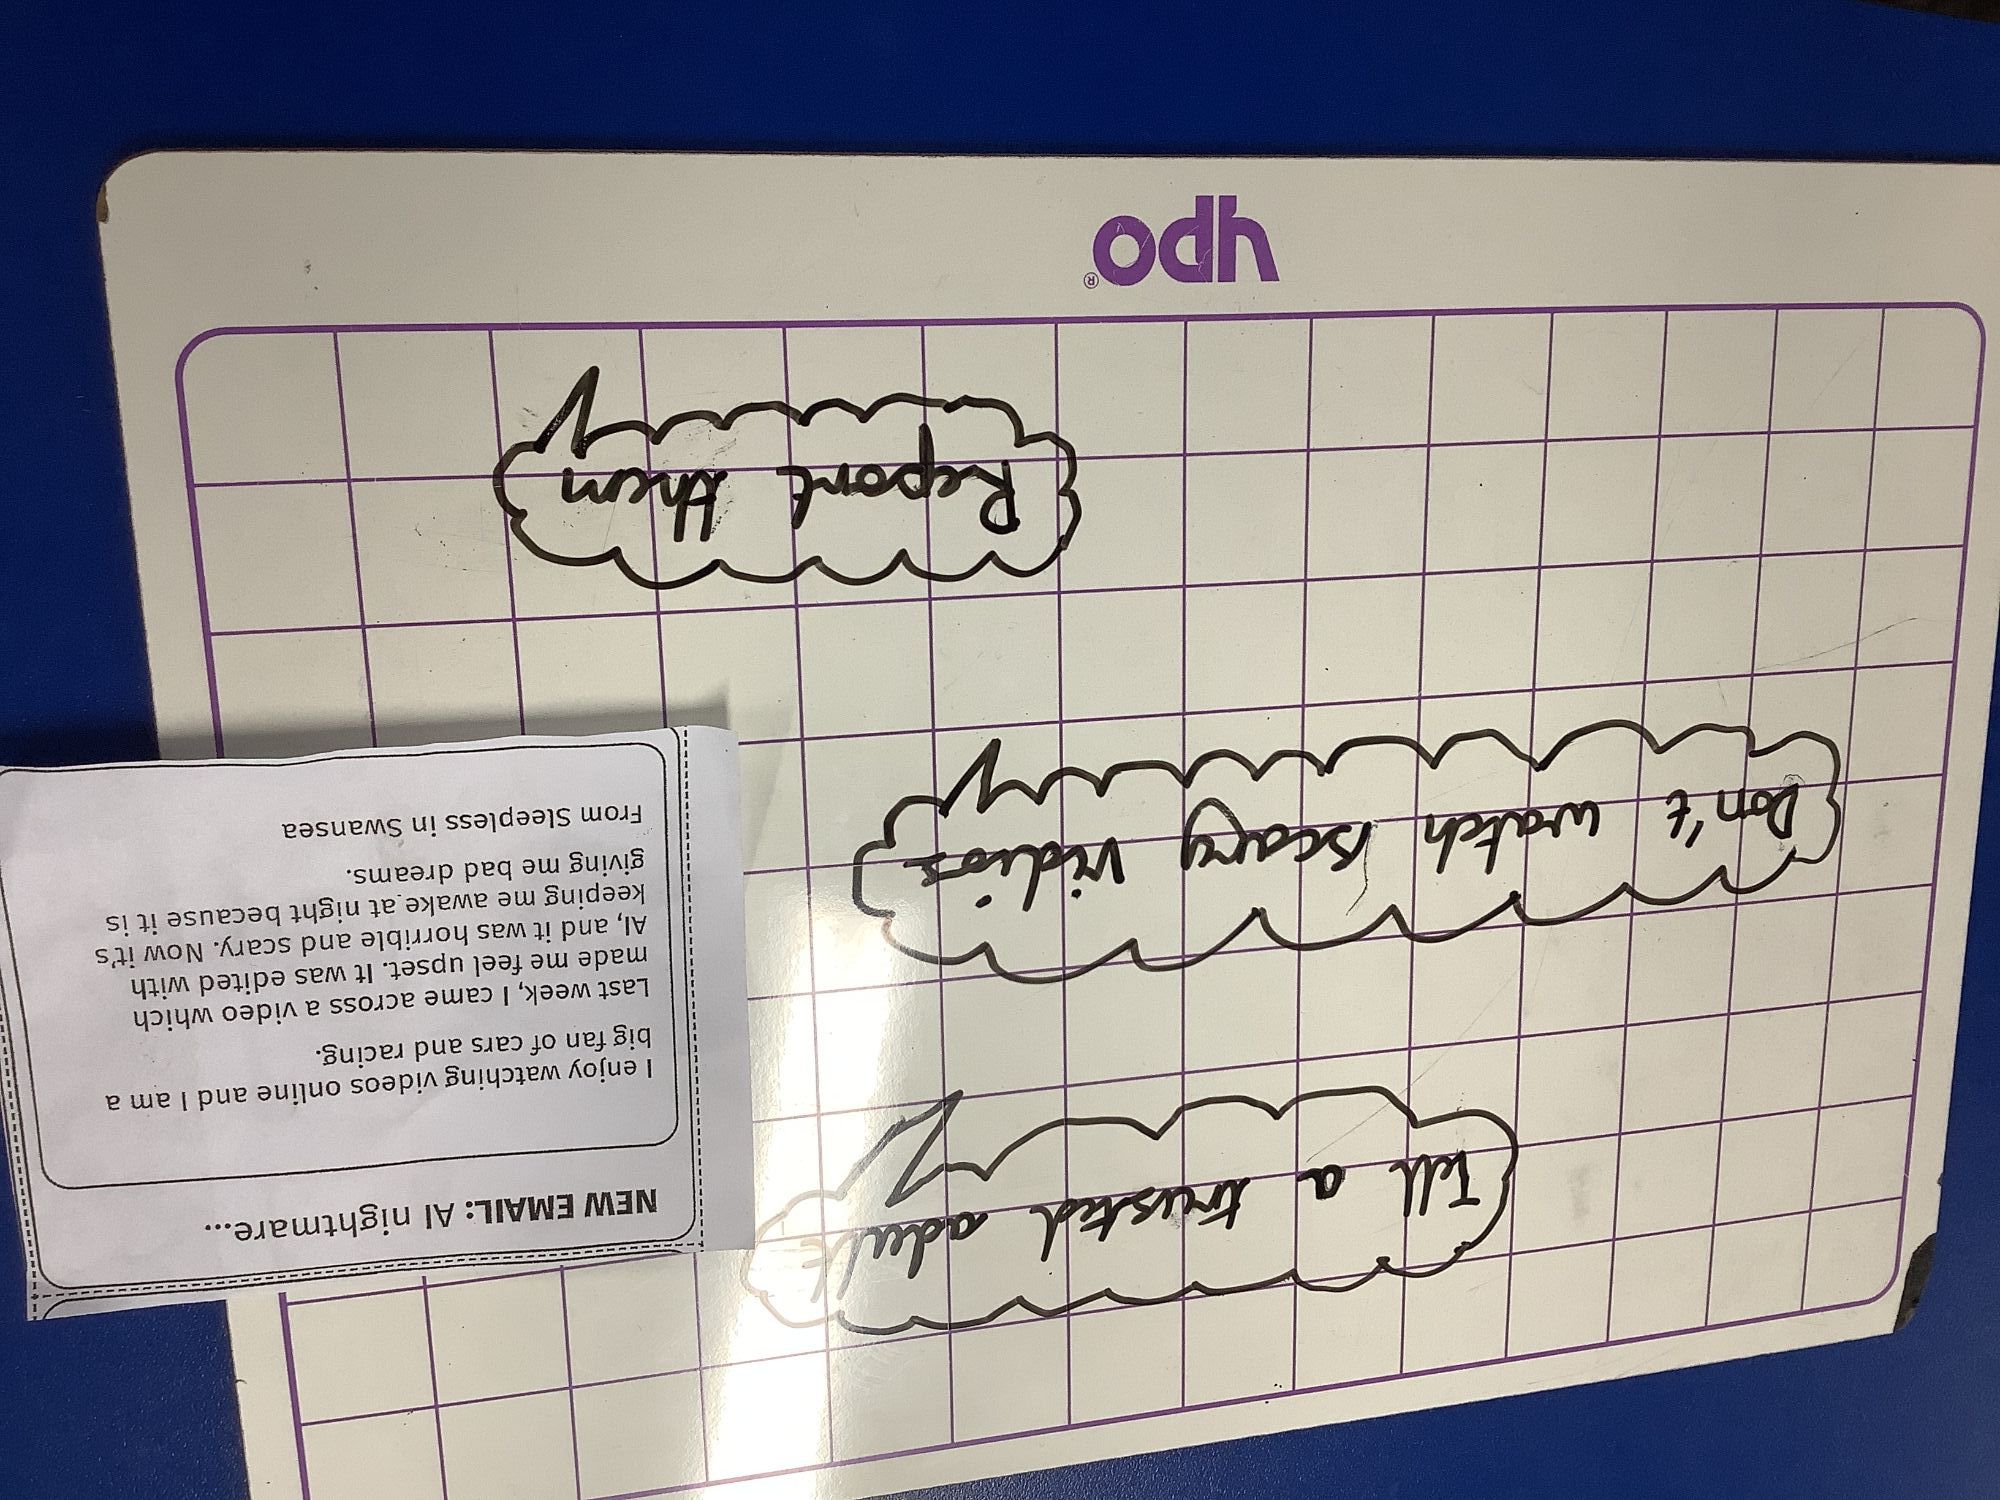 NEW EMAIL: AI nightmare...
I enjoy watching videos online and I am a
big fan of cars and racing.
Last week, I came across a video which
made me feel upset. It was edited with
AI, and it was horrible and scary. Now it's
keeping me awake at night because it is
giving me bad dreams.
From Sleepless in Swansea
Tell a trusted adult
Don't watch scary vidios
Report them
ypo®